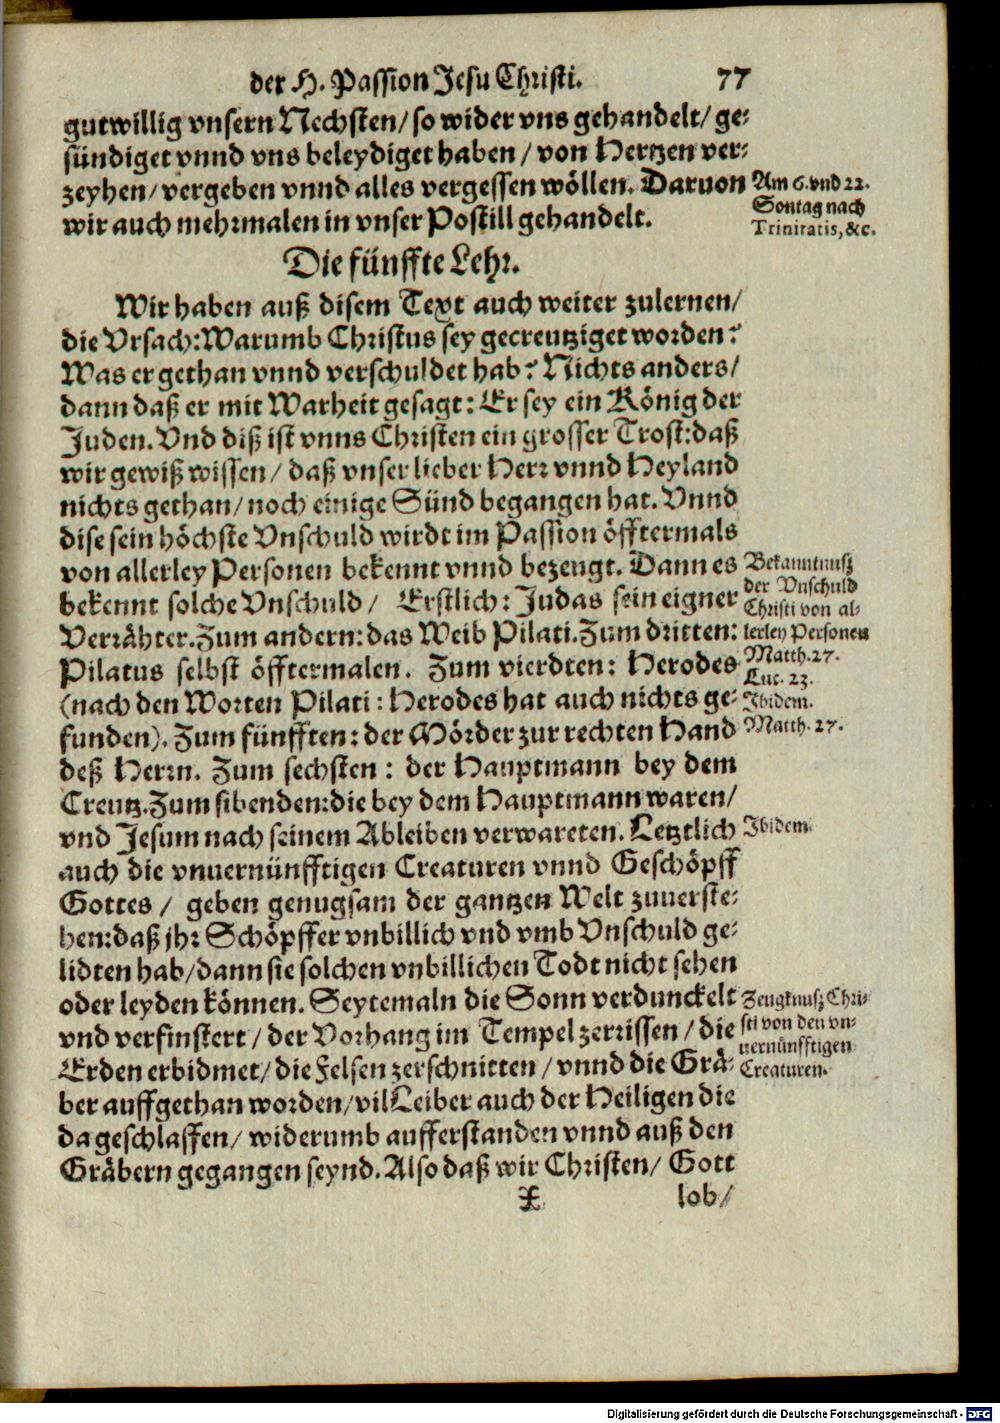 der H. Passion Jesu Christi. 77
gutwillig vnsern Nechsten/ so wider vns gehandelt/ ge-
sündiget vnnd vns beleydiget haben / von Hertzen ver-
zeyhen/ vergeben vnnd alles vergessen wöllen. Daruon
wir auch mehrmalen in vnser Postill gehandelt.
Am 6. vnd 22.
Sontag nach
Trinitatis, &c.
Die fünffte Lehr.
Wir haben auß disem Text auch weiter zulernen/
die Vrsach: Warumb Christus sey gecreutziget worden?
Was er gethan vnnd verschuldet hab? Nichts anders/
dann daß er mit Warheit gesagt: Er sey ein König der
Juden. Vnd diß ist vnns Christen ein grosser Trost: daß
wir gewiß wissen/ daß vnser lieber Herr vnnd Heyland
nichts gethan/ noch einige Sünd begangen hat. Vnnd
dise sein höchste Vnschuld wirdt im Passion öfftermals
von allerley Personen bekennt vnnd bezeugt. Dann es
bekennt solche Vnschuld/ Erstlich: Judas sein eigner
Verrähter. Zum andern: das Weib Pilati. Zum dritten:
Pilatus selbst öfftermalen. Zum vierdten: Herodes
(nach den Worten Pilati: Herodes hat auch nichts ge-
funden). Zum fünfften: der Mörder zur rechten Hand
deß Herrn. Zum sechsten: der Hauptmann bey dem
Creutz. Zum sibenden: die bey dem Hauptmann waren/
vnd Jesum nach seinem Ableiben verwareten. Letztlich
auch die vnuernünfftigen Creaturen vnnd Geschöpff
Gottes / geben genugsam der gantzen Welt zuuerste-
hen: daß jhr Schöpffer vnbillich vnd vmb Vnschuld ge-
lidten hab/ dann sie solchen vnbillichen Todt nicht sehen
oder leyden können. Seytemaln die Sonn verdunckelt
vnd verfinstert / der Vorhang im Tempel zerrissen / die
Erden erbidmet/ die Felsen zerschnitten / vnnd die Grä-
ber auffgethan worden/ vil Leiber auch der Heiligen die
da geschlaffen/ widerumb aufferstanden vnnd auß den
Gräbern gegangen seynd. Also daß wir Christen/ Gott
Bekanntnusz
der Vnschuld
Christi von al-
lerley Personen
Matth. 27.
Luc. 23.
Ibidem.
Matth. 27.
Ibidem.
Zeugknusz Chri-
sti von den vn-
uernünfftigen
Creaturen.
X lob/
Digitalisierung gefördert durch die Deutsche Forschungsgemeinschaft - DFG